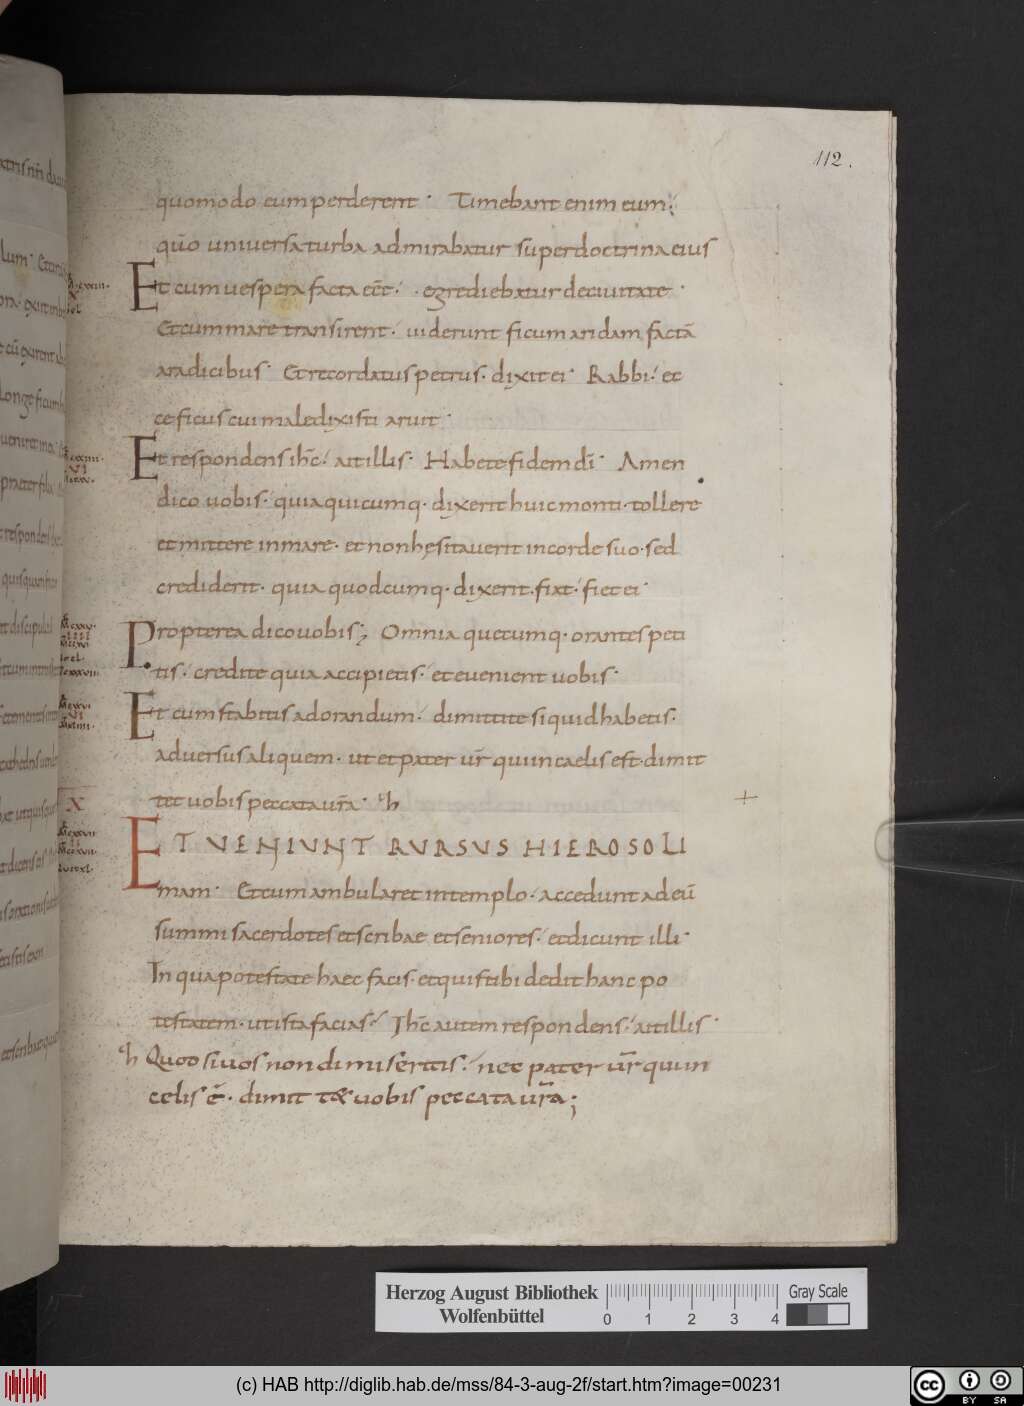 112.
quomodo eum perderent· Timebant enim eum;
qūo universa turba admirabatur super doctrina eius
Et cum uespera facta eēt· egrediebatur deciuitate·
Et cum mane transirent· uiderunt ficum aridam factā
aradicibus· Et recordatus petrus· dixit ei· Rabbi· ec
ce ficus cui maledixisti aruit·
Et respondens ih̄c· ait illis· Habete fidem dī· Amen
dico uobis· quia quicumq· dixerit huic monti· tollere
et mittere in mare· et non hęsitauerit in corde suo· sed
crediderit· quia quodcumq· dixerit· fiat· fiet ei·
Propterea dico uobis; Omnia quecumq· orantes peti
tis· credite quia accipietis· et euenient uobis·
Et cum stabitis ad orandum· dimittite si quid habetis·
aduersus aliquem· ut et pater ur̄ qui in caelis est· dimit
tet uobis peccata ur̄a· h
X
ET VENIUNT RURSUS HIEROSOLI
mam· Et cum ambularet in templo· accedunt ad eū
summi sacerdotes et scribae et seniores· et dicunt illi·
In qua potestate haec facis· et quis tibi dedit hanc po
testatem· ut ista facias· Ih̄c autem respondens· ait illis·
h Quod si uos non dimiseritis· nec pater ur̄ qui in
celis ē· dimit tet uobis peccata ur̄a;
Herzog August Bibliothek
Wolfenbüttel
0 1 2 3 4
Gray Scale
(c) HAB http://diglib.hab.de/mss/84-3-aug-2f/start.htm?image=00231
cc BY SA